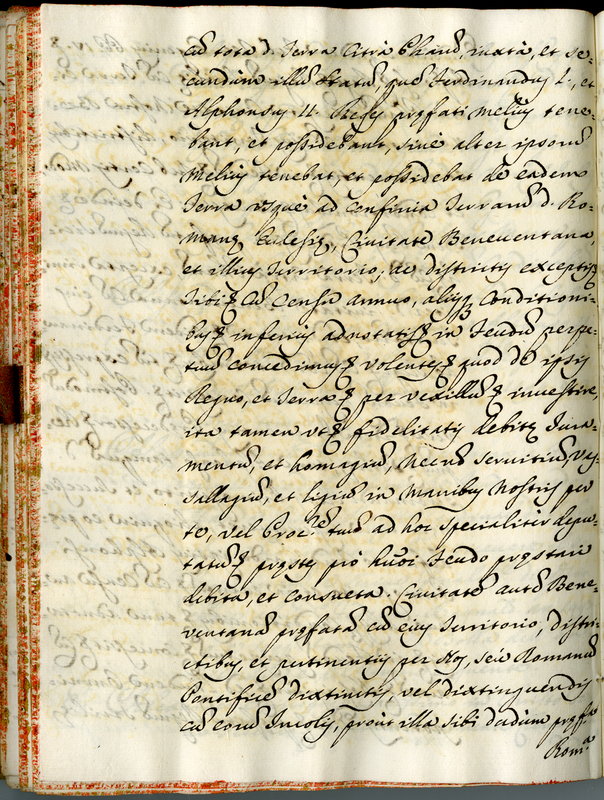 cũ tota d. Terra Citrà Pharũ, mata, et se-
cundum illũ statũ, quẽ Ferdinandus I., et
Alphonsus II. Reges pręfati melius tene-
bant, et possidebant, sive alter ipsorũ
melius tenebat, et possidebat de eadem
Terra usque ad Confinia Terrarũ d. Ro-
manę Eclesię, Civitate Beneventana,
et illius Territorio, ac districtu exceptis
tibi Cũ Censu annuo, aliisq; Conditioni-
bus inferius adnotatis in Feudũ perpe-
tuũ concedimus volentes quod de ipsis
Regno, et Terra per vexillũ investire,
ita tamen ut fidelitatis debitę Jura-
mentũ, et homagiũ, Necnõ servitiũ, vas-
sallagiũ, et ligiũ in Manibus Nostris per
te, vel Proc.rẽ tuũ ad hoc specialiter depu-
tatũ pręstes pro huõi Feudo pręstari
debita, et consueta. Civitatẽ autẽ Bene-
ventanã pręfatã cũ eius Territorio, distri-
ctibus, et pertinentiis per Nos, seu Romanũ
Pontificẽ distinctis, vel distinguendis
cũ eorũ Incolis, prout illa sibi dudum pręfa
Rom.a